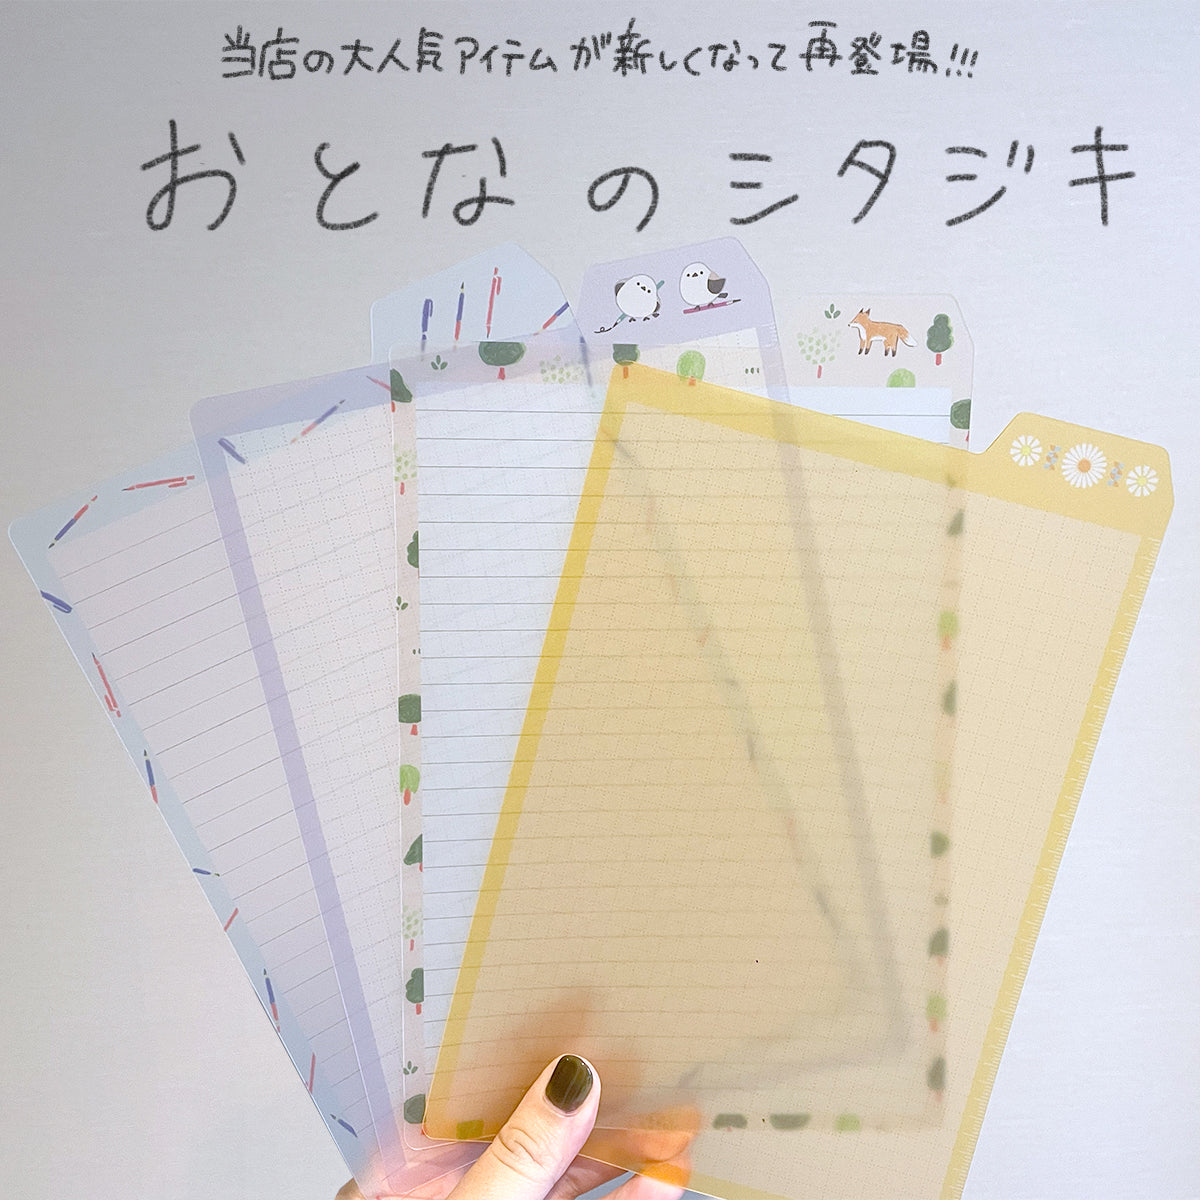 当店の大人気アイテムが新しくなって再登場!!!
おとなのシタジキ